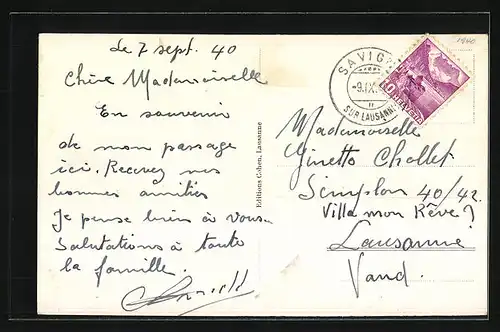 Le 7 sept. 40
Chère Mademoiselle
En souvenir
de mon passage
ici. Recevez mes
bonnes amitiés
Je pense bien à vous.
Salutations à toute
la famille.
Editions Cohen, Lausanne
1940
SAVIGNY
-9.IX.
SUR LAUSANNE
10 HELVETIA
Mademoiselle
Ginette Chollet
Simplon 40/42.
Villa mon Rêve
Lausanne
Vaud.